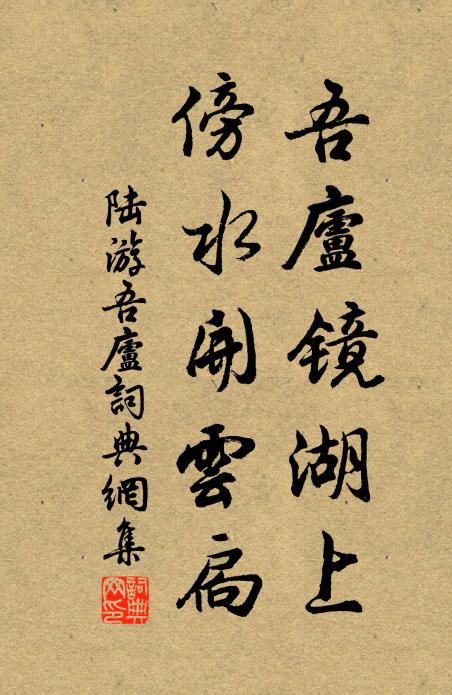 吾廬镜湖上
傍水開雲扃
陆游吾廬詞典網集
詞典网印